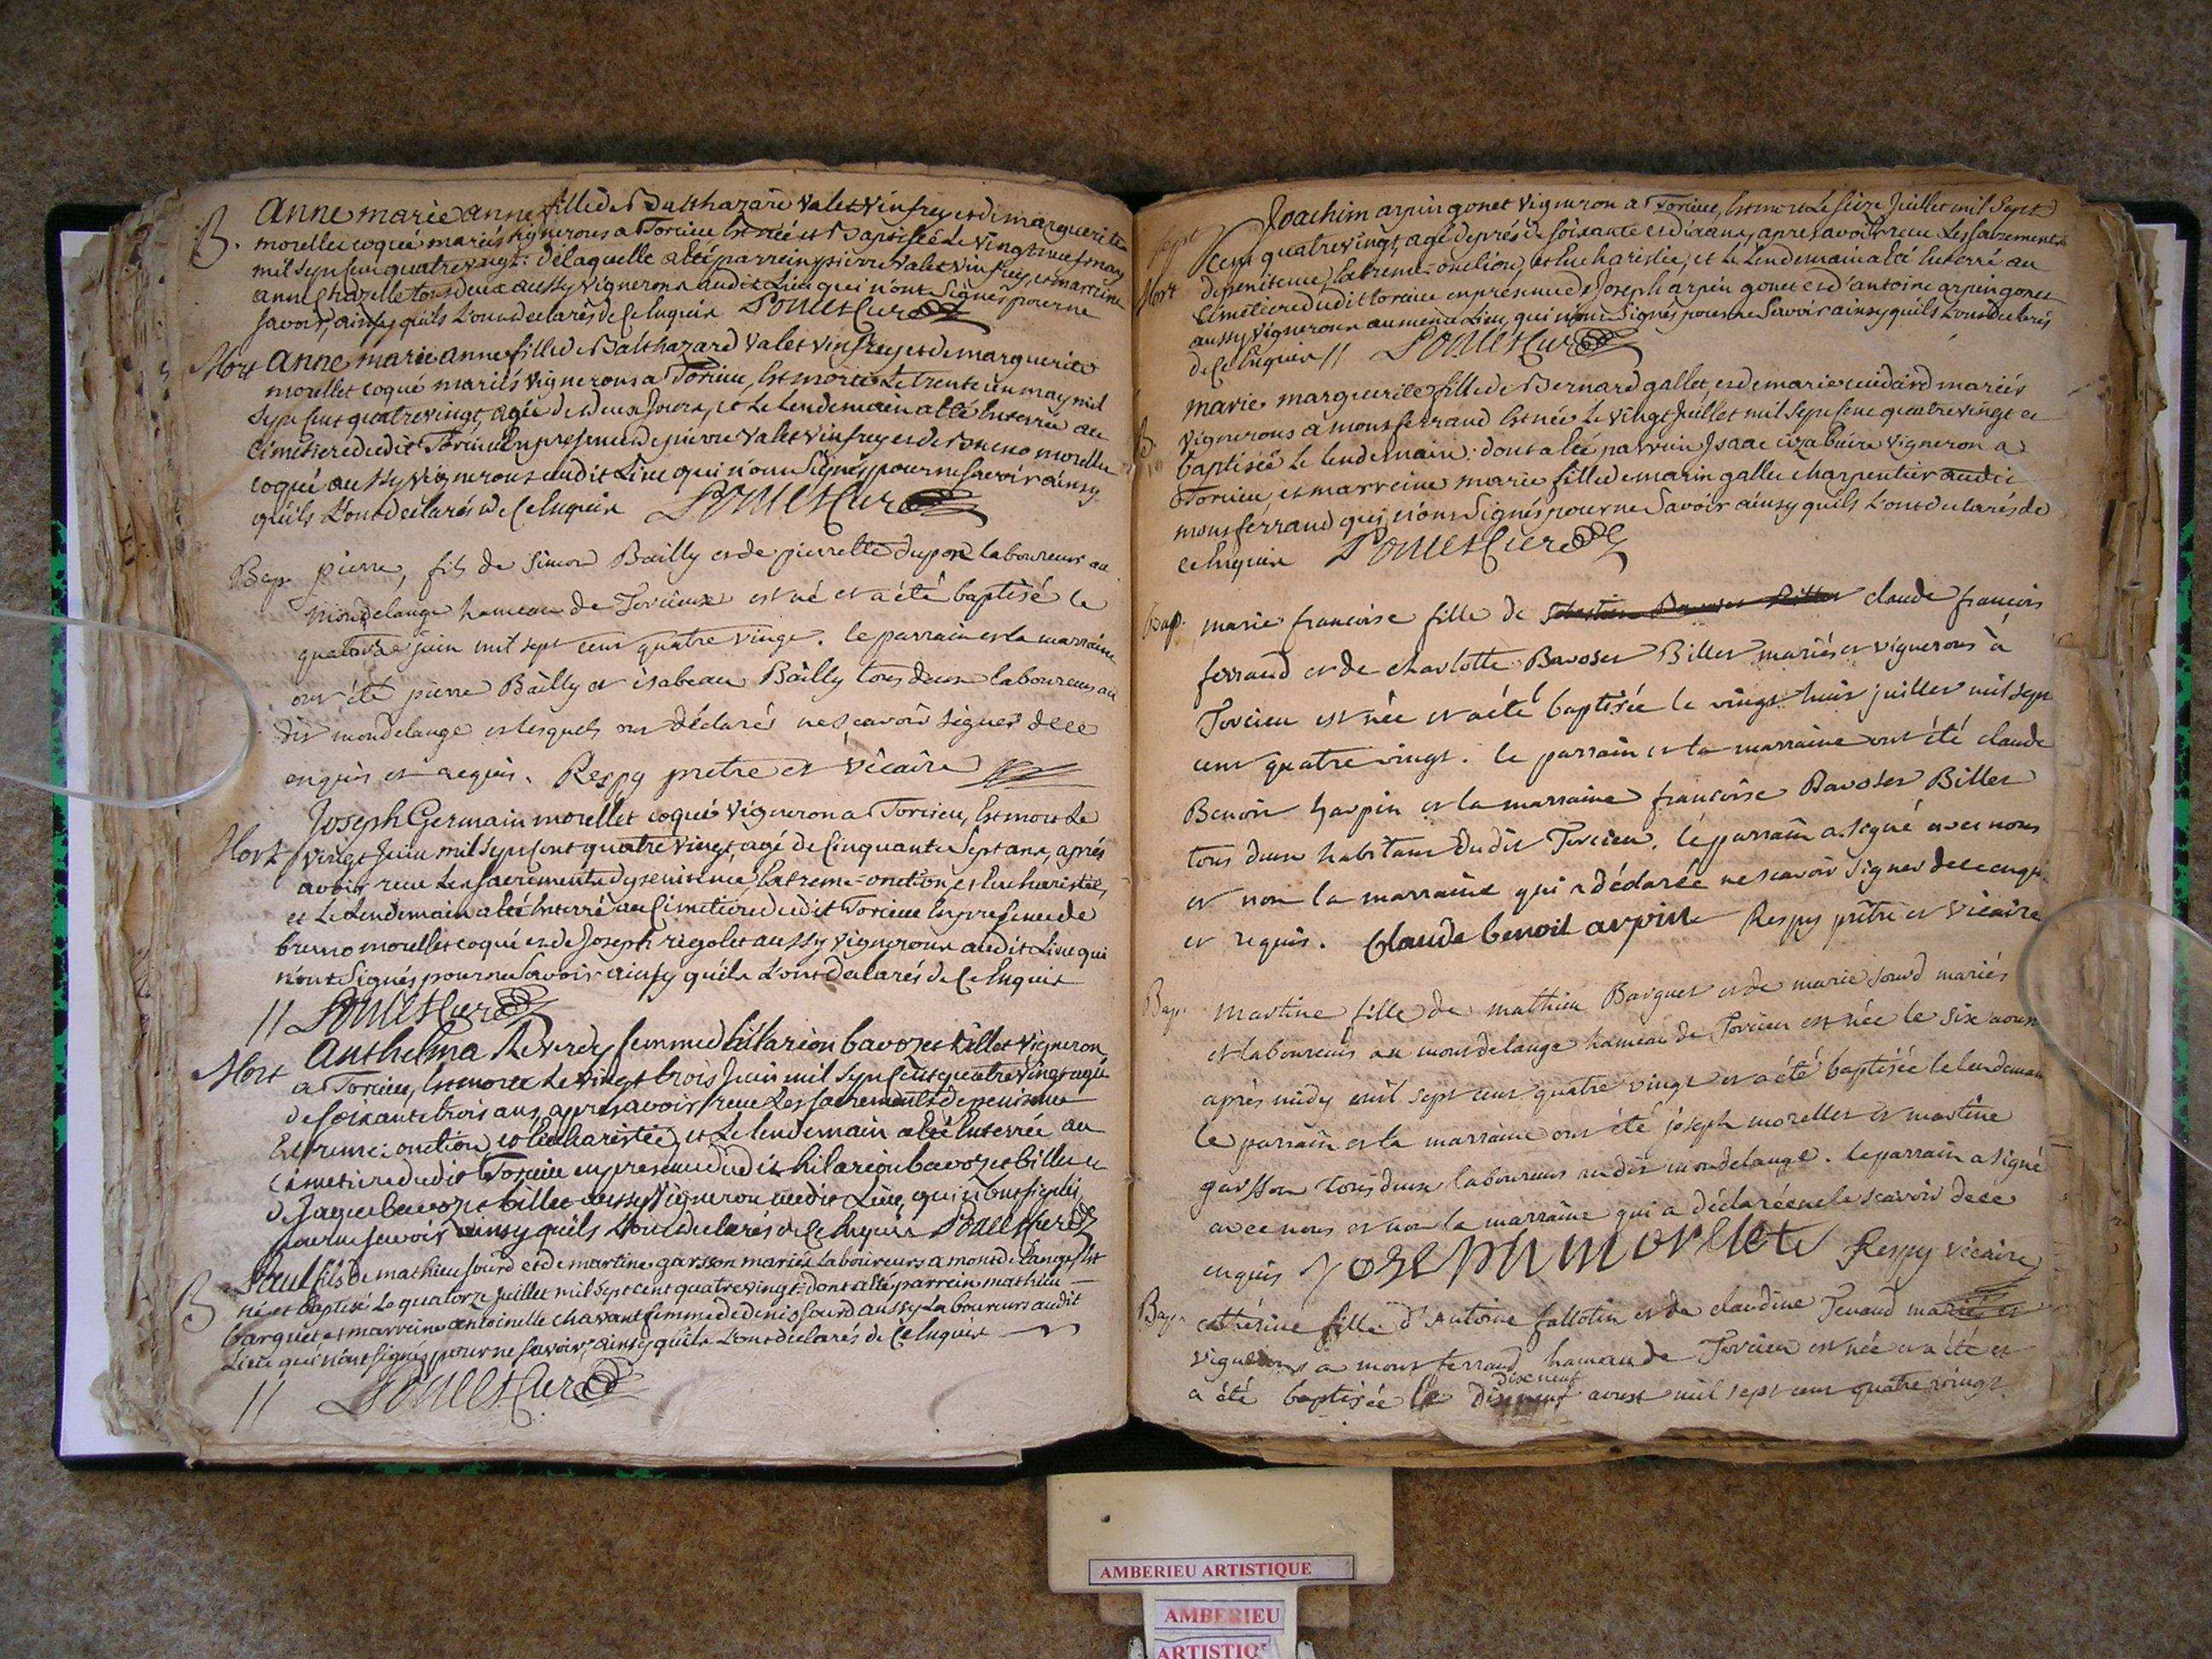 B. anne marie anne fille de Balthazard valet vinfrey et de marguerite
morellet coqué mariés vignerons a Torcieu est née et Baptisée le vingt neuf may
mil sept cent quatre vingt: de laquelle a été parrein pierre valet vinfrey, et marreine
anne Chazelle tous deux aussy vignerons audit Lieu qui n'ont signés pour ne
savoir, ainsy quils L'ont declarés de ce Enquis Poncet Curé
Mort anne marie anne fille de Balthazard valet vinfrey et de marguerite
morellet coqué mariés vignerons a Torcieu, est morte Le trente un may mil
sept cent quatre vingt, agée de deux Jours, et Le Lendemain a été Enterrée au
Cimetiere dudit Torcieu En presence de pierre valet vinfrey et de Bruno morellet
coqué aussy vignerons audit Lieu qui n'ont Signés pour ne savoir ainsy
quils L'ont declarés de Ce Enquis Poncet Curé
Bap. pierre, fils de Simon Bailly et de pierrette dupon laboureurs au
mondelange hameau de Torcieux est né et a été baptisé le
quatorze juin mil sept cent quatre vingt. le parrain et la marraine
ont été pierre Bailly et isabeau Bailly tous deux laboureurs au
dit mondelange et lesquels ont déclarés ne sçavoir signer de ce
enquis et requis. Respy pretre et vicaire
Joseph Germain morellet coqué vigneron a Torcieu, est mort Le
Mort vingt Juin mil sept Cent quatre vingt, agé de Cinquante Sept ans, aprés
avoir reçu Les sacrements de penitence, Extreme-onction, et Eucharistie,
et Le Lendemain a été Enterré au Cimetiere dudit Torcieu En presence de
bruno morellet coqué et de Joseph rigolet aussy vignerons audit Lieu qui
n'ont Signés pour ne Savoir ainsy quils L'ont declarés de Ce Enquis
// Poncet Curé
Mort Anthelma Reverdy femme d hilarion bavozet billet vigneron
a Torcieu, est morte Le vingt trois Juin mil sept Cent quatre vingt agée
de soixante trois ans, apres avoir reçue Les sacrements de penitence
Extreme onction, et Eucharistie, et Le lendemain a été Enterrée au
Cimetiere dudit Torcieu en presence dudit hilarion bavozet billet et
de Jaque bavozet billet aussy vigneron audit Lieu, qui n'ont signés
pour ne savoir ainsy quils L'ont declarés de Ce Enquis Poncet Curé
Paul fils de mathieu sourd et de martine garsson mariés Laboureurs a mondelange, Est
B né et baptisé Le quatorze juillet mil sept cent quatre vingt: dont a été parrein mathieu
barquet et marreine antoinette chavant femme de denis Sourd aussy Laboureurs audit
Lieu qui n'ont signés pour ne savoir, ainsy quils L'ont declarés de Ce Enquis
// Poncet Curé
Joachim arpin gonet vigneron a Torcieu, Est mort Le seize Juillet mil Sept
Cent quatre vingt, agé de prés de soixante et dix ans, apres avoir reçu Les sacrements
Mort de penitence, Extreme-onction, et Eucharistie, et Le Lendemain a été Enterré au
Cimetiere dudit Torcieu en presence de Joseph arpin gonet et d'antoine arpin gonet
aussy vignerons au meme Lieu, qui n'ont Signés pour ne Savoir ainsy quils L'ont declarés
de Ce Enquis // Poncet Curé
marie marguerite fille de Bernard gallet, et de marie mariés
B. vignerons a montferrand Est née Le vingt Juillet mil sept cent quatre vingt et
baptisée Le lendemain: dont a été parrein Isaac vigneron a
Torcieu et marreine marie fille de marin gallet charpentier audit
montferrand qui n'ont Signés pour ne Savoir ainsy quils L'ont declarés de
ce Enquis Poncet Curé
Bap. marie francoise fille de claude francois
ferrand et de charlotte Bavoset Billet mariés et vignerons à
Torcieu est née et a été baptisée le vingt huit juillet mil sept
cent quatre vingt. le parrain et la marraine ont été claude
Benoit harpin et la marraine francoise Bavoset Billet
tous deux habitans dudit Torcieu. le parrain a signé avec nous
et non la marraine qui a déclarée ne scavoir signer de ce enqui
et requis. Claude benoit arpin Respy prêtre et vicaire
Bap. martine fille de mathieu Barquet et de marie sourd mariés
et laboureurs au mondelange hameau de Torcieu est née le six aoust
après midy mil sept cent quatre vingt et a été baptisée le lendemain
le parrain et la marraine ont été joseph morellet et martine
garsson tous deux laboureurs audit mondelange. le parrain a signé
avec nous et non la marraine qui a déclarée ne le scavoir de ce
enquis Joseph morellet Respy vicaire
Bap. cathérine fille d'Antoine fallotin et de claudine Tenand mariés et
vignerons a montferrand hameau de Torcieu est née et a été et
dixneuf
a été baptisée le dixneuf aoust mil sept cent quatre vingt
AMBERIEU ARTISTIQUE
AMBERIEU
ARTISTIQ